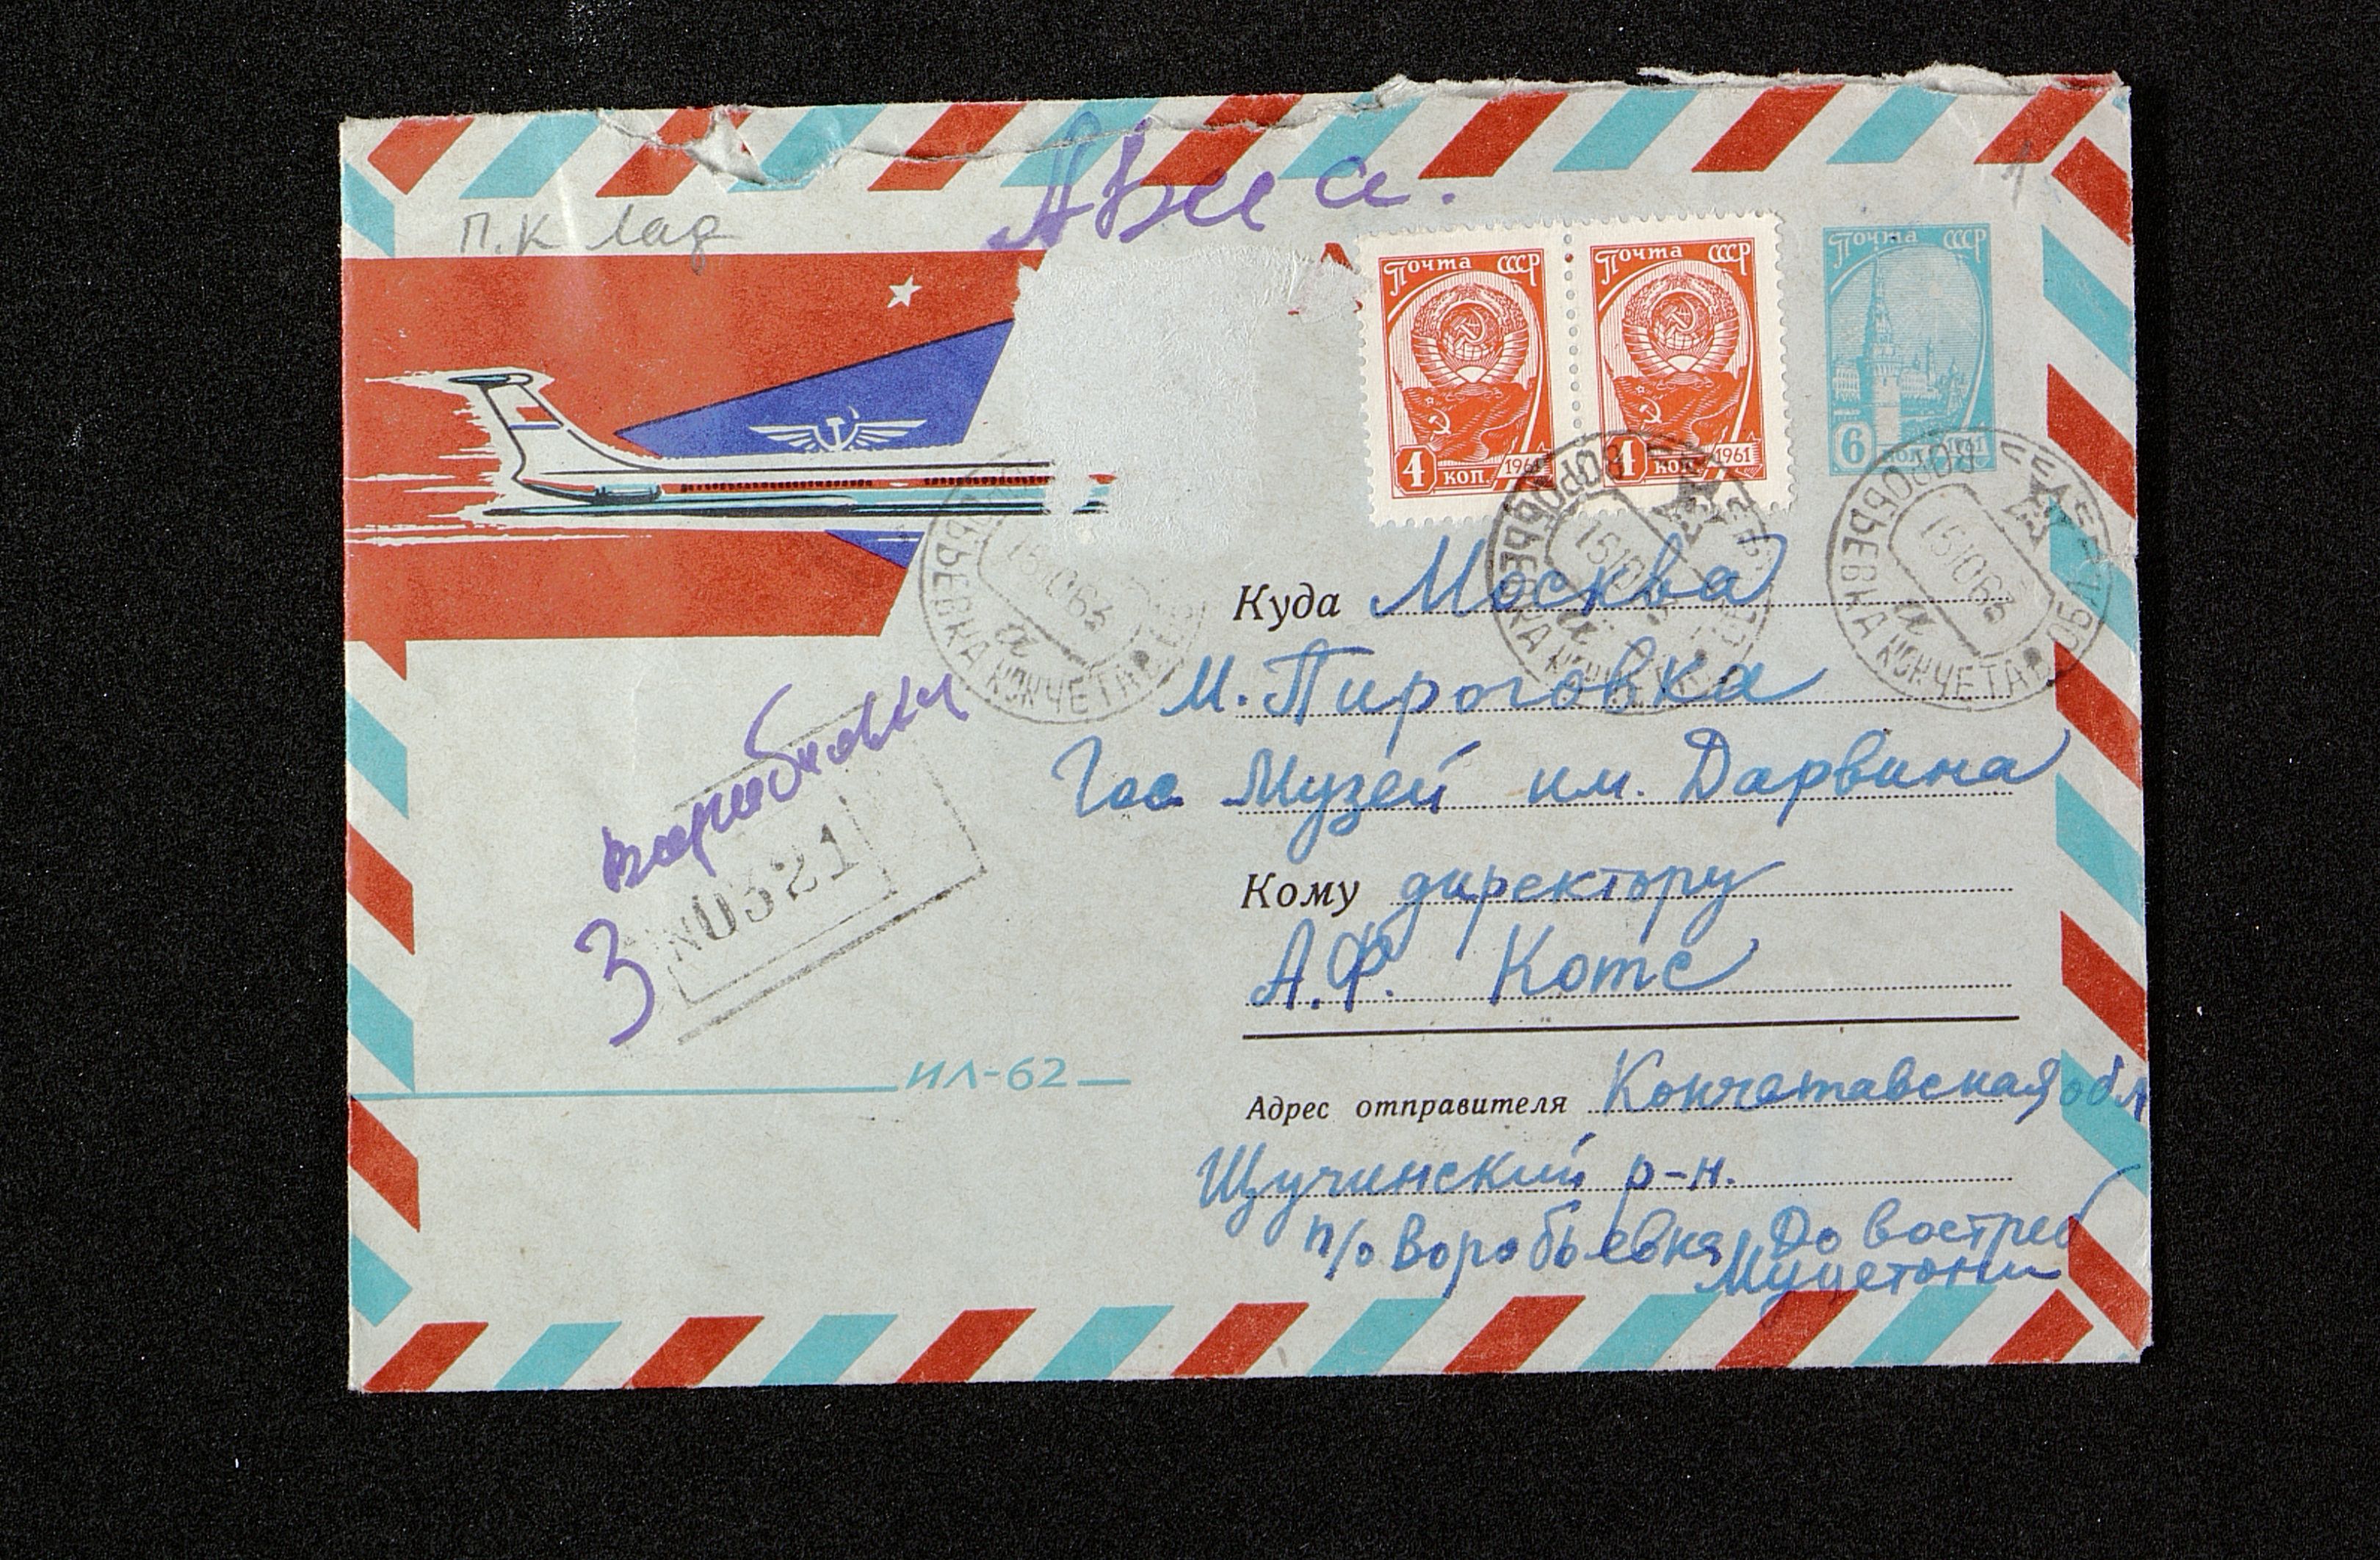 Авиа.
П.К Лад
Почта СССР
4 коп 1961
Почта СССР
4 коп 1961
Почта СССР
6 коп 1961
ВОРОБЬЕВКА КОКЧЕТАВ
151063
ВОРОБЬЕВКА
151063
ВОРОБЬЕВКА КОКЧЕТАВ
151063
Куда Москва
М. Пироговка
Гос Музей им. Дарвина
Кому директору
А.Ф. Котс
З
№0321
ИЛ-62
Адрес отправителя Кокчетавская обл
Щучинский р-н.
п/о Воробьевка До востреб